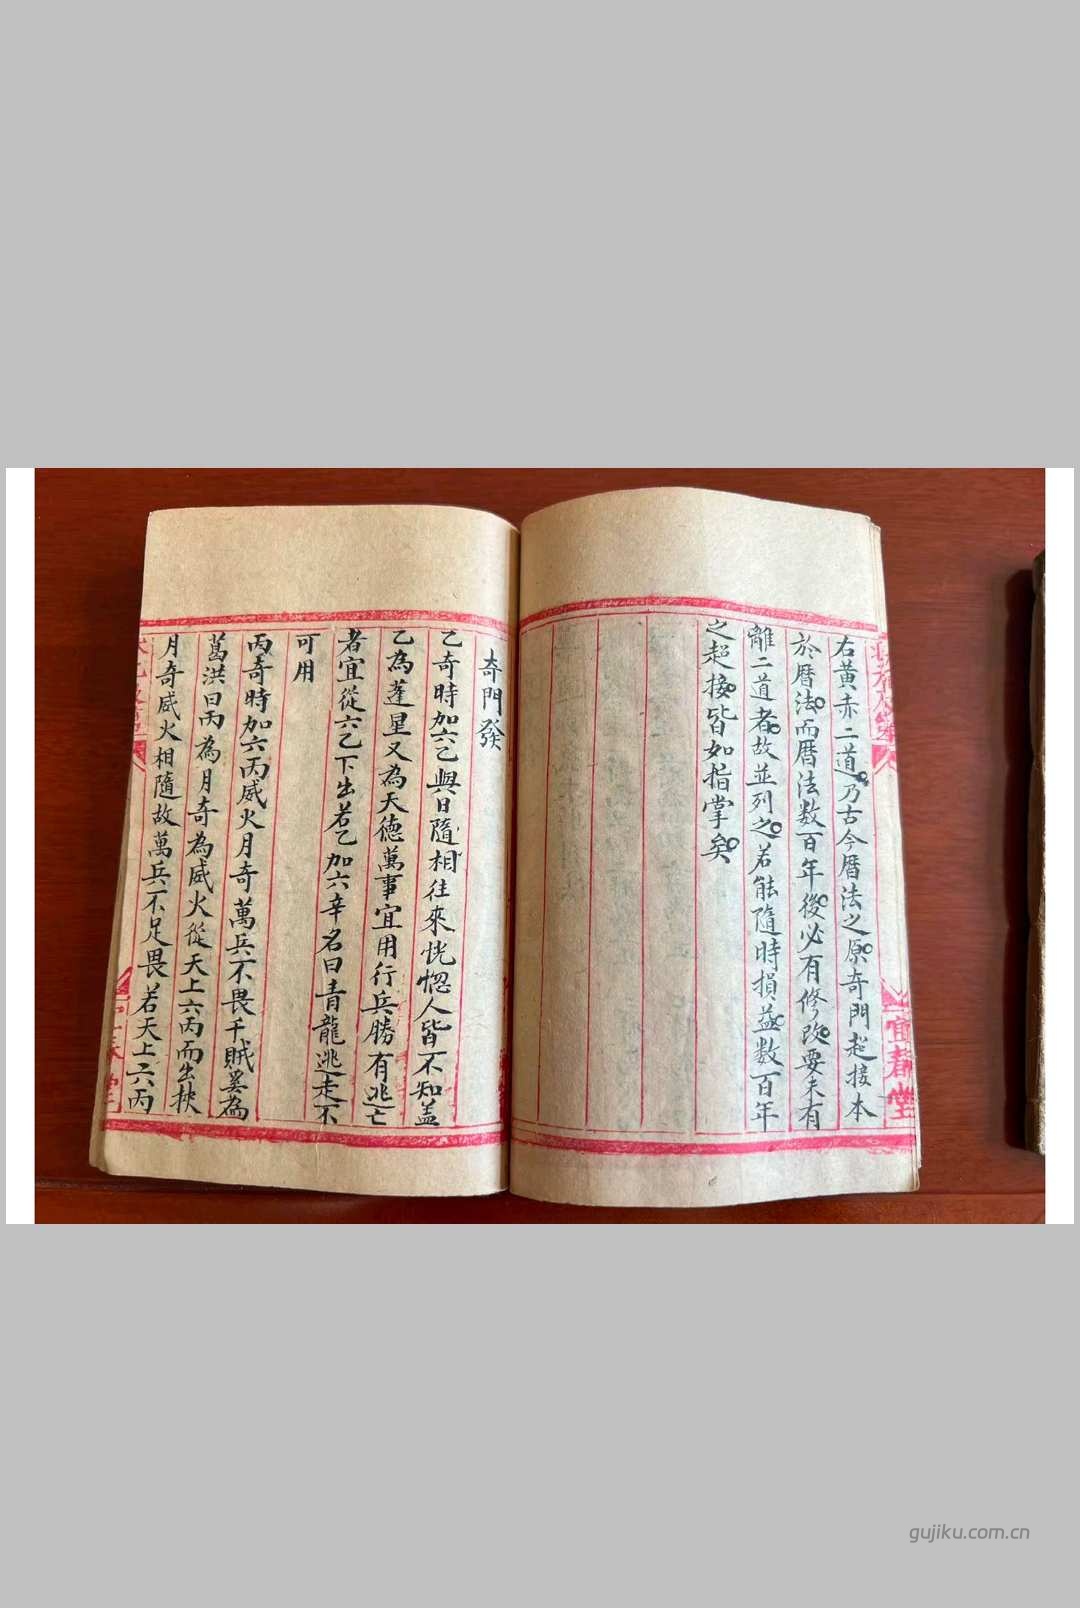 右黃赤二道乃古今暦法之原奇門超接本
於暦法而暦法数百年後必有修改要未有
離二道者故並列之若能隨時損益数百年
之超接皆如指掌矣
宜春堂
奇門發
乙奇時加六乙與日隨相往來恍惚人皆不知盖
乙為蓬星又為天德萬事宜用行兵勝有逃亡
者宜從六乙下出若乙加六辛名曰青龍逃走不
可用
丙奇時加六丙威火月奇萬兵不畏千賊異為
葛洪曰丙為月奇為威火從天上六丙而出挾
月奇威火相隨故萬兵不足畏若天上六丙
gujiku.com.cn